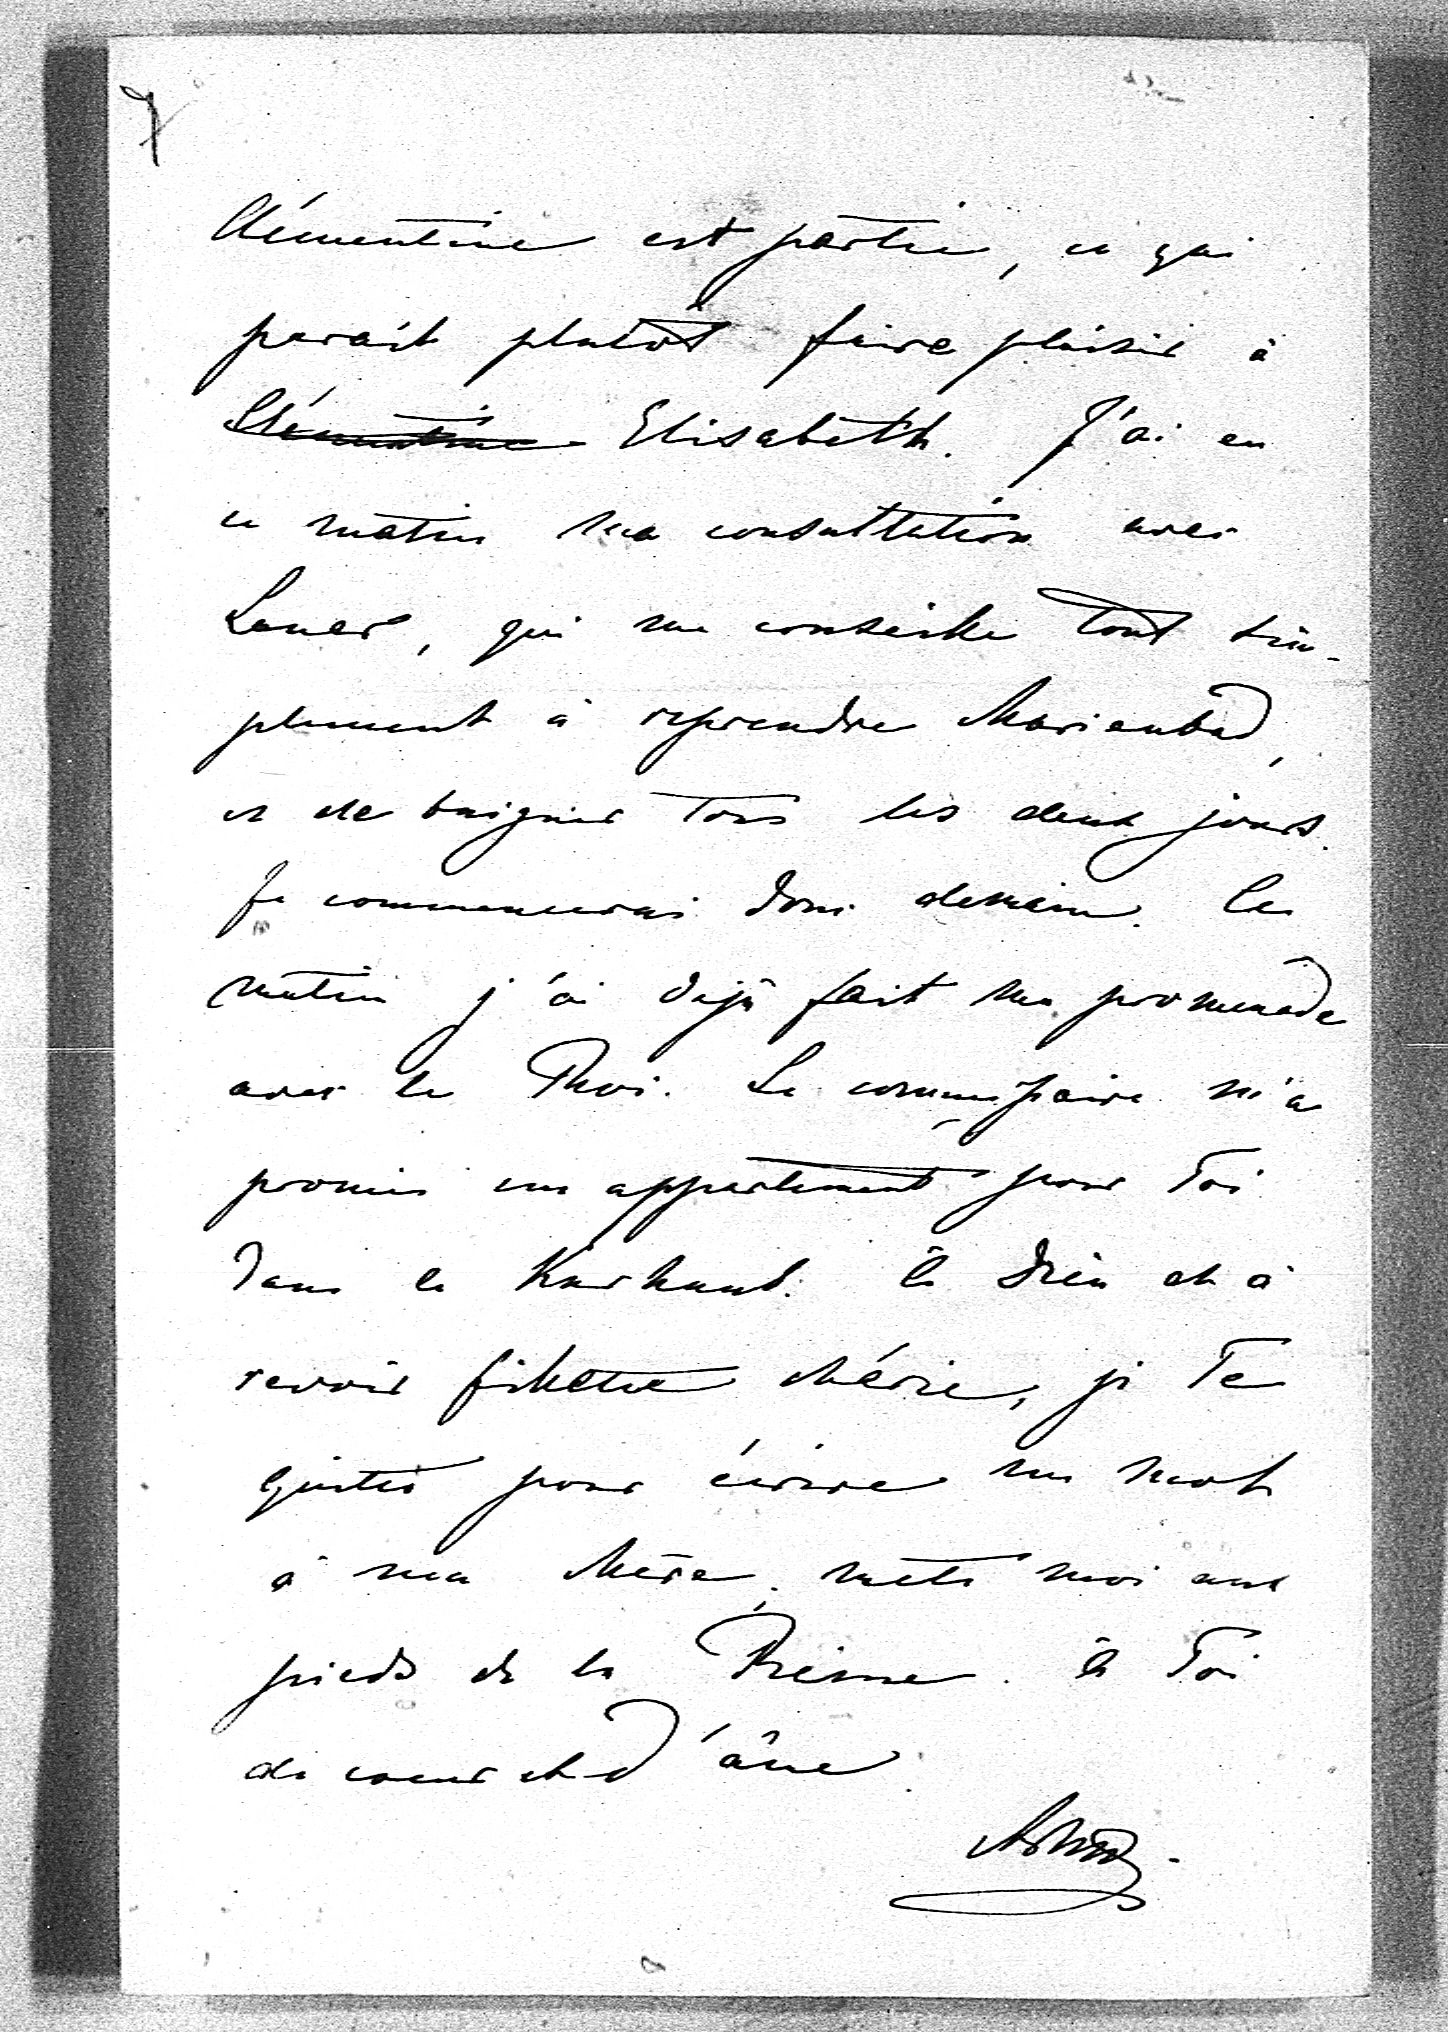 7
Clémentine est partie, ce qui
parait plutôt faire plaisir à
Clémentine Elisabeth. J'ai eu
ce matin ma consultation avec
, qui me conseille tout sim-
plement à reprendre Marienbad,
et de baigner tous les deux jours.
Je commencerai donc demain. Ce
matin j'ai déjà fait ma promenade
avec le Roi. Le commissaire m'a
promis un appartement pour Toi
dans le Kurhaus. à Dieu et à
revoir chérie, je Te
quitte pour écrire un mot
à ma Mère, mets moi aux
pieds de la Reine. à Toi
de coeur et d'âme.